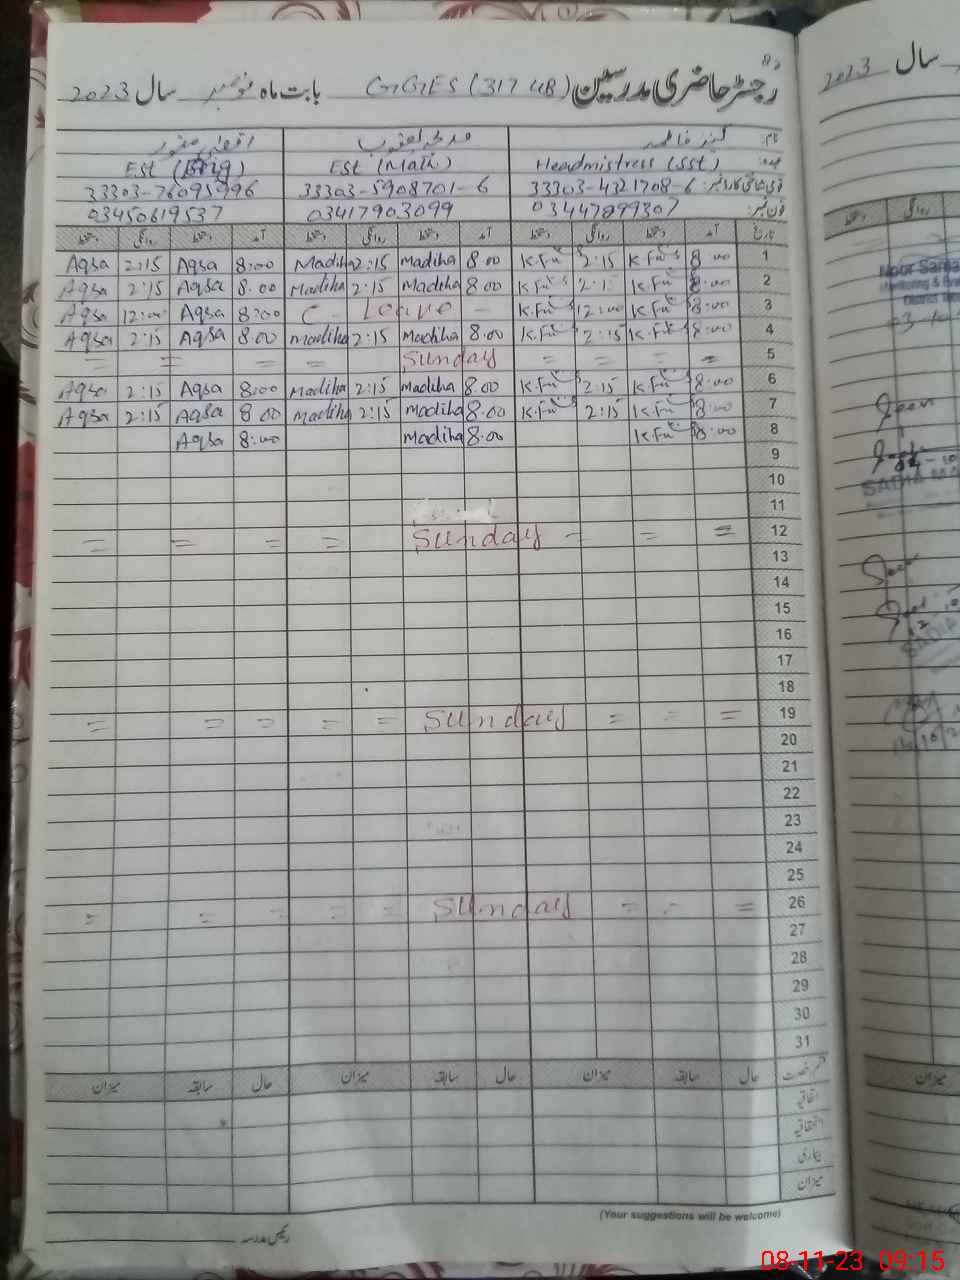 رجسٹر حاضری مدرسین GGES (317 GB) بابت ماہ نومبر سال 2023
نام: کنیز فاطمہ مدیحہ یعقوب اقصیٰ منور
عہدہ: Headmistress (SST) EST (Math) EST (Eng)
قومی شناختی کارڈ نمبر: 33303-4321708-6 33303-5908701-6 33303-76095996
فون نمبر: 03447899307 03417903099 03450619537
تاریخ آمد دستخط روانگی دستخط آمد دستخط روانگی دستخط آمد دستخط روانگی دستخط
1 8:00 K.F 2:15 K.F 8:00 Madiha 2:15 Madiha 8:00 Aqsa 2:15 Aqsa
2 8:00 K.F 2:15 K.F 8:00 Madiha 2:15 Madiha 8:00 Aqsa 2:15 Aqsa
3 8:00 K.F 12:00 K.F C - Leave - 8:00 Aqsa 12:00 Aqsa
4 8:00 K.F 2:15 K.F 8:00 Madiha 2:15 Madiha 8:00 Aqsa 2:15 Aqsa
5 = = = = Sunday = = = =
6 8:00 K.F 2:15 K.F 8:00 Madiha 2:15 Madiha 8:00 Aqsa 2:15 Aqsa
7 8:00 K.F 2:15 K.F 8:00 Madiha 2:15 Madiha 8:00 Aqsa 2:15 Aqsa
8 8:00 K.F 8:00 Madiha 8:00 Aqsa
9
10
11
12 = = = Sunday = = = =
13
14
15
16
17
18
19 = = = Sunday = = = = =
20
21
22
23
24
25
26 = = = Sunday = = = = =
27
28
29
30
31
قسم رخصت حال سابقہ میزان حال سابقہ میزان حال سابقہ میزان
اتفاقیہ
استحقاقیہ
بیماری
میزان
(Your suggestions will be welcome)
رئیس مدرسہ
سال 2023
دستخط روانگی
میزان
08-11-23 09:15